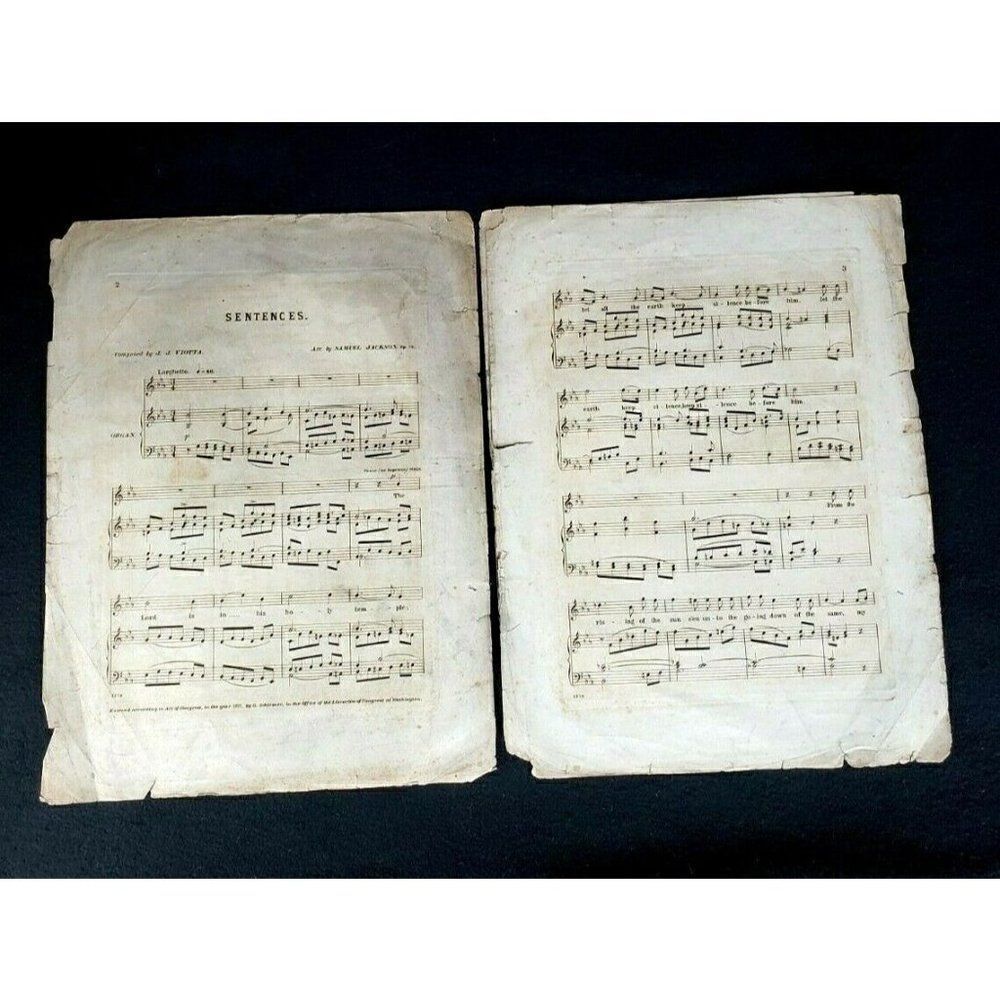 2
SENTENCES.
Composed by J. J. VIOTTA.
Arr. by SAMUEL JACKSON. Op.
Larghetto.
ORGAN.
p
The
Lord is in his ho - ly tem - ple.
Entered according to Act of Congress, in the year 1871, by G. Schirmer, in the Office of the Librarian of Congress at Washington.
3
let all the earth keep si - lence be - fore him, let the
earth keep si - lence, keep si - lence be - fore him.
From the
ris - ing of the sun e'en un - to the go - ing down of the same, my